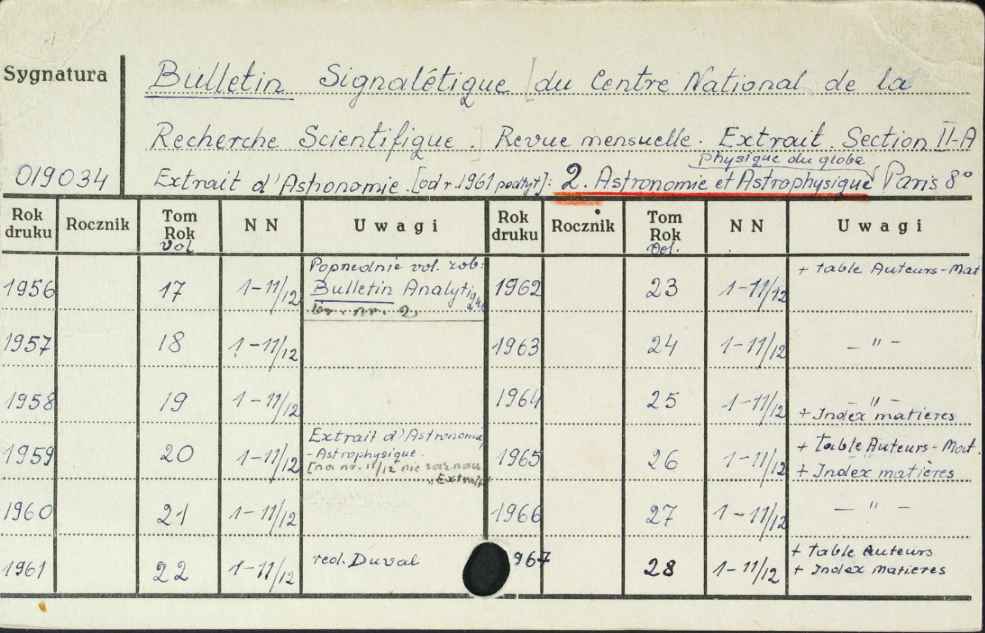 Sygnatura
Bulletin Signalétique [du Centre National de la
Recherche Scientifique.] Revue mensuelle. Extrait. Section II-A
physique du globe
019034 Extrait d'Astronomie. [od r. 1961 podtyt]: 2. Astronomie et Astrophysique Paris 8°
Rok druku Rocznik Tom Rok vol N N Uwagi Rok druku Rocznik Tom Rok vol. N N Uwagi
1956 17 1-11/12 Poprzednie vol. zob. Bulletin Analytique nr. 2. 1962 23 1-11/12 + table Auteurs-Mat
1957 18 1-11/12 1963 24 1-11/12 - " -
1958 19 1-11/12 1964 25 1-11/12 - " - + Index matières
1959 20 1-11/12 Extrait d'Astronomie, -Astrophysique. [na nr. 11/12 nie zaznacz. "Extrait" 1965 26 1-11/12 + Table Auteurs-Mat. + Index matières
1960 21 1-11/12 1966 27 1-11/12 - " -
1961 22 1-11/12 red. Duval 967 28 1-11/12 + Table Auteurs + Index matières